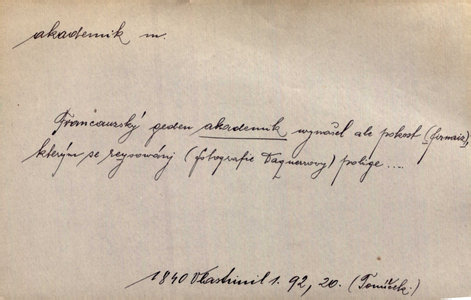 akademik m.
Francauzský geden akademik wynašel ale pokost (fermais),
kterým se reysowánj (fotografie Daguerovy) polige ....
1840 Vlastimil 1. 92, 20. (Tomíček.)